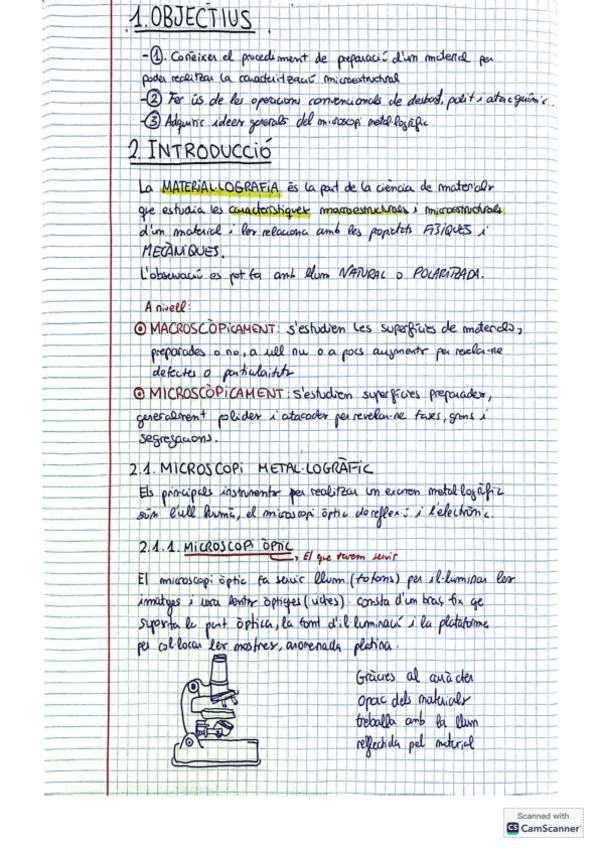 1. OBJECTIUS
-①. Conèixer el procediment de preparació d'un material per
poder realitzar la caracterització microestructural
-② Fer ús de les operacions convencionals de desbast, polit i atac químic.
-③ Adquirir idees generals del microscopi metal·logràfic
2. INTRODUCCIÓ
La MATERIAL·LOGRAFIA és la part de la ciència de materials
que estudia les característiques macroestructurals i microestructurals
d'un material i les relaciona amb les propietats FÍSIQUES i
MECÀNIQUES.
L'observació es pot fa amb llum NATURAL o POLARITZADA.
A nivell:
MACROSCÒPICAMENT: s'estudien les superfícies de materials,
preparades o no, a ull nu o a pocs augments per revelar-ne
defectes o particularitats
MICROSCÒPICAMENT: s'estudien superfícies preparades,
generalment polides i atacades per revelar-ne fases, grans i
segregacions.
2.1. MICROSCOPI METAL·LOGRÀFIC
Els principals instruments per realitzar un examen metal·logràfic
són l'ull humà, el microscopi òptic de reflexió i l'electrònic.
2.1.1. MICROSCOPI ÒPTIC
El que farem servir
El microscopi òptic fa servir llum (fotons) per il·luminar les
imatges i una lents òptiques (vidres). consta d'un braç fix qe
suporta la part òptica, la font d'il·luminació i la plataforma
per col·locar les mostres, anomenada platina.
Gràcies al caràcter
opac dels materials
treballa amb la llum
reflectida pel material
Scanned with
CS CamScanner